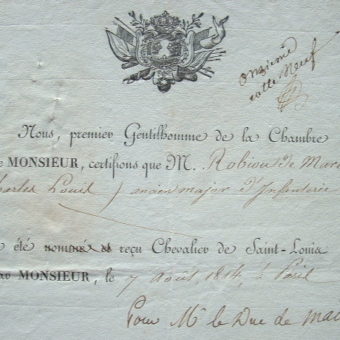 onzieme
cotte Neuf
Nous, premier Gentilhomme de la Chambre
e MONSIEUR, certifions que M. Robiou de Mare
harles Louis ) ancien major d'Infanterie
été nommé et reçu Chevalier de Saint-Louis
MONSIEUR, le 7 Août 1814, à Paris
Pour Mr le Duc de Mai